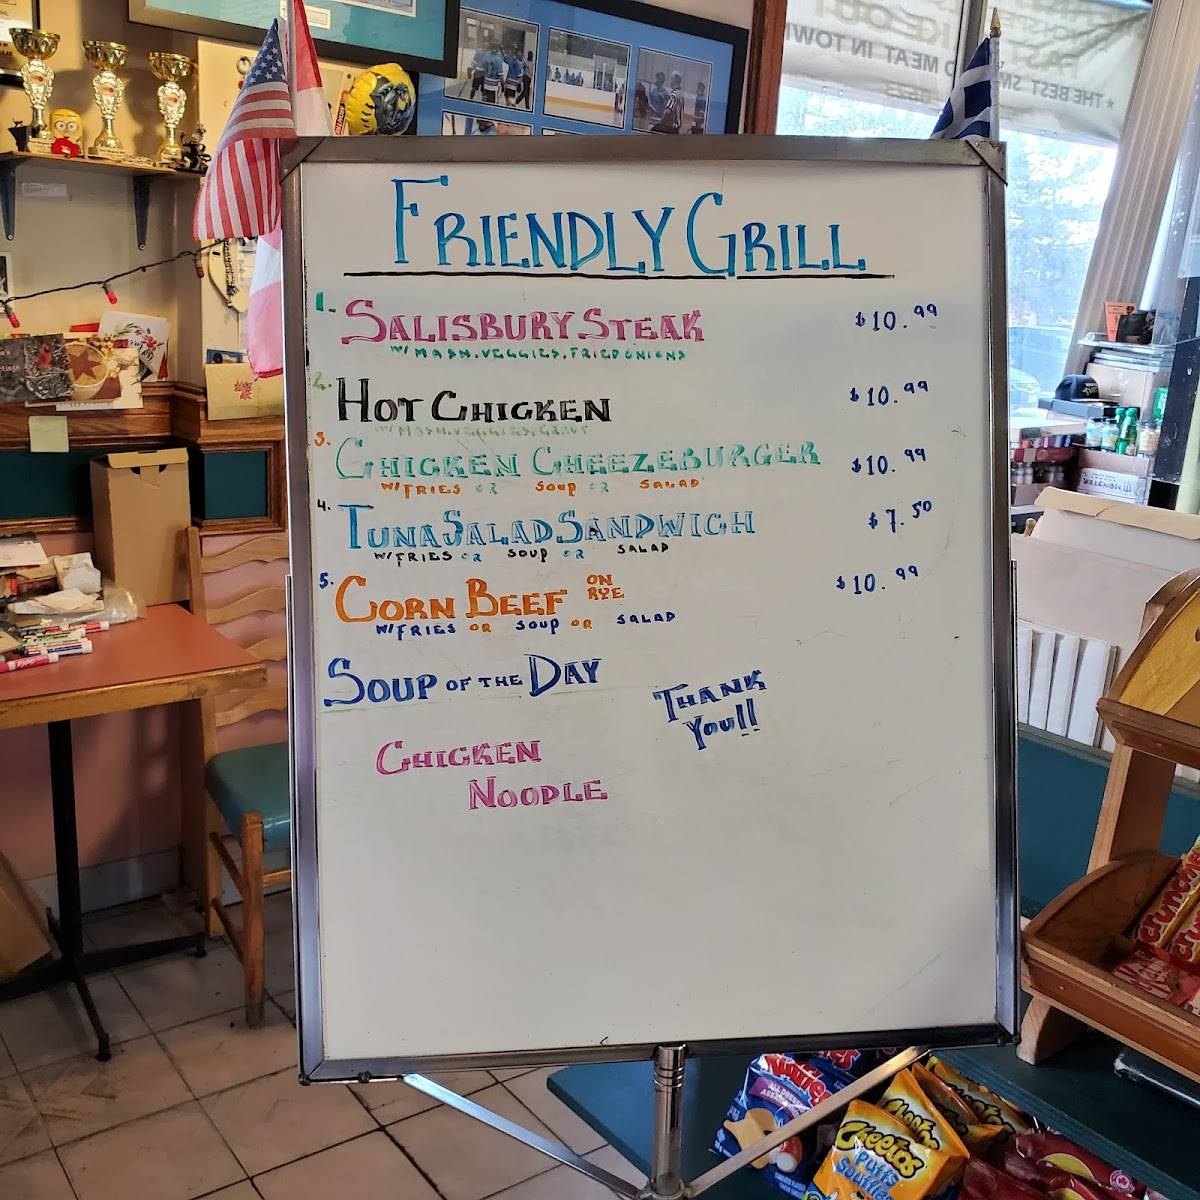 FRIENDLY GRILL
1. SALISBURY STEAK $10.99
W/ MASH. VEGGIES, FRIED ONIONS
2. HOT CHICKEN $10.99
W/ MASH. VEGGIES, GRAVY
3. CHICKEN CHEEZEBURGER $10.99
W/ FRIES OR SOUP OR SALAD
4. TUNA SALAD SANDWICH $7.50
W/ FRIES OR SOUP OR SALAD
5. CORN BEEF ON RYE $10.99
W/ FRIES OR SOUP OR SALAD
SOUP OF THE DAY
THANK
YOU!!
CHICKEN
NOODLE
TAKE OUT
* THE BEST SMOKED MEAT IN TOWN
MONSTER
Crunchie
Cheetos
Puffs
Soufflés